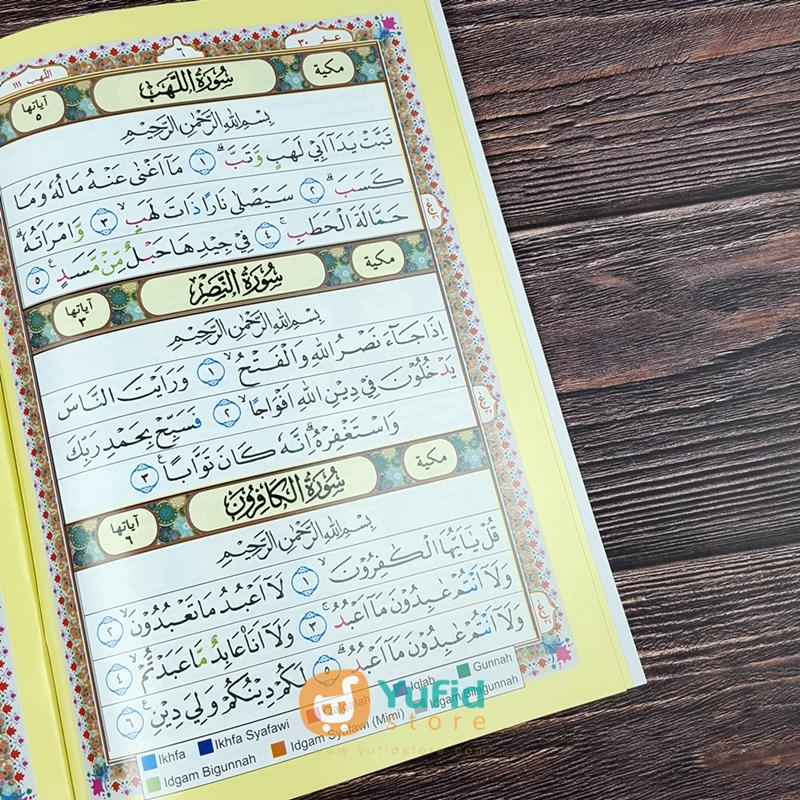 عمّ ٣٠
٦
اللّهب ١١١
مكية
سُوْرَةُ اللَّهَبِ
آياتها ٥
بِسْمِ اللهِ الرَّحْمٰنِ الرَّحِيْمِ
تَبَّتْ يَدَآ اَبِيْ لَهَبٍ وَّتَبَّۗ ١ مَآ اَغْنٰى عَنْهُ مَالُهٗ وَمَا
كَسَبَۗ ٢ سَيَصْلٰى نَارًا ذَاتَ لَهَبٍۙ ٣ وَّامْرَاَتُهٗۗ
حَمَّالَةَ الْحَطَبِۚ ٤ فِيْ جِيْدِهَا حَبْلٌ مِّنْ مَّسَدٍ ࣖ ٥
مكية
سُوْرَةُ النَّصْرِ
آياتها ٣
بِسْمِ اللهِ الرَّحْمٰنِ الرَّحِيْمِ
اِذَا جَآءَ نَصْرُ اللهِ وَالْفَتْحُۙ ١ وَرَاَيْتَ النَّاسَ
يَدْخُلُوْنَ فِيْ دِيْنِ اللهِ اَفْوَاجًاۙ ٢ فَسَبِّحْ بِحَمْدِ رَبِّكَ
وَاسْتَغْفِرْهُۗ اِنَّهٗ كَانَ تَوَّابًا ࣖ ٣
مكية
سُوْرَةُ الْكَافِرُوْنَ
آياتها ٦
بِسْمِ اللهِ الرَّحْمٰنِ الرَّحِيْمِ
قُلْ يٰٓاَيُّهَا الْكٰفِرُوْنَۙ ١ لَآ اَعْبُدُ مَا تَعْبُدُوْنَۙ ٢
وَلَآ اَنْتُمْ عٰبِدُوْنَ مَآ اَعْبُدُۚ ٣ وَلَآ اَنَا۠ عَابِدٌ مَّا عَبَدْتُّمْۙ ٤
وَلَآ اَنْتُمْ عٰبِدُوْنَ مَآ اَعْبُدُۗ ٥ لَكُمْ دِيْنُكُمْ وَلِيَ دِيْنِ ࣖ ٦
Ikhfa Ikhfa Syafawi Qalqalah Iqlab Gunnah
Idgam Bigunnah Idgam Syafawi (Mimi) Idgam Bilagunnah
Yufid
store
www.yufidstore.com